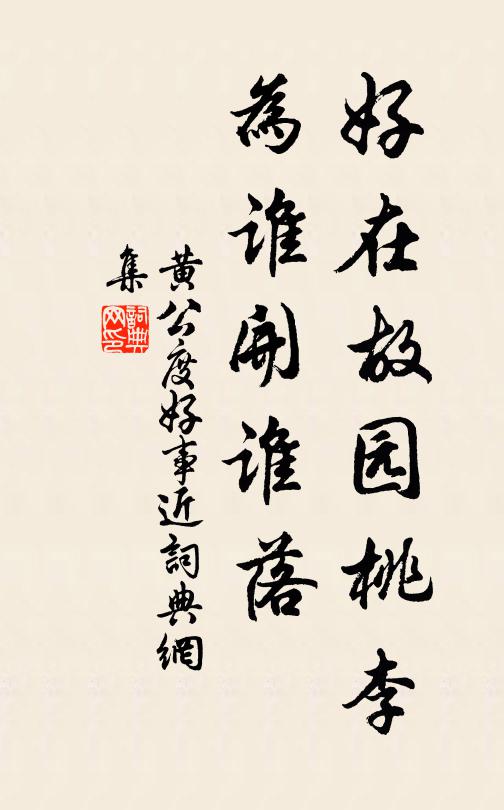 好在故园桃李
為誰開誰落
黄公度好事近詞典網
集
詞典网印